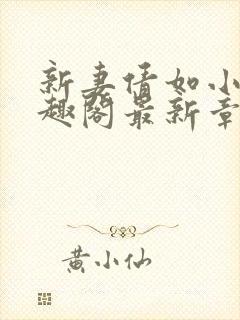 新妻情如小
趣阁最新章
黄小仙